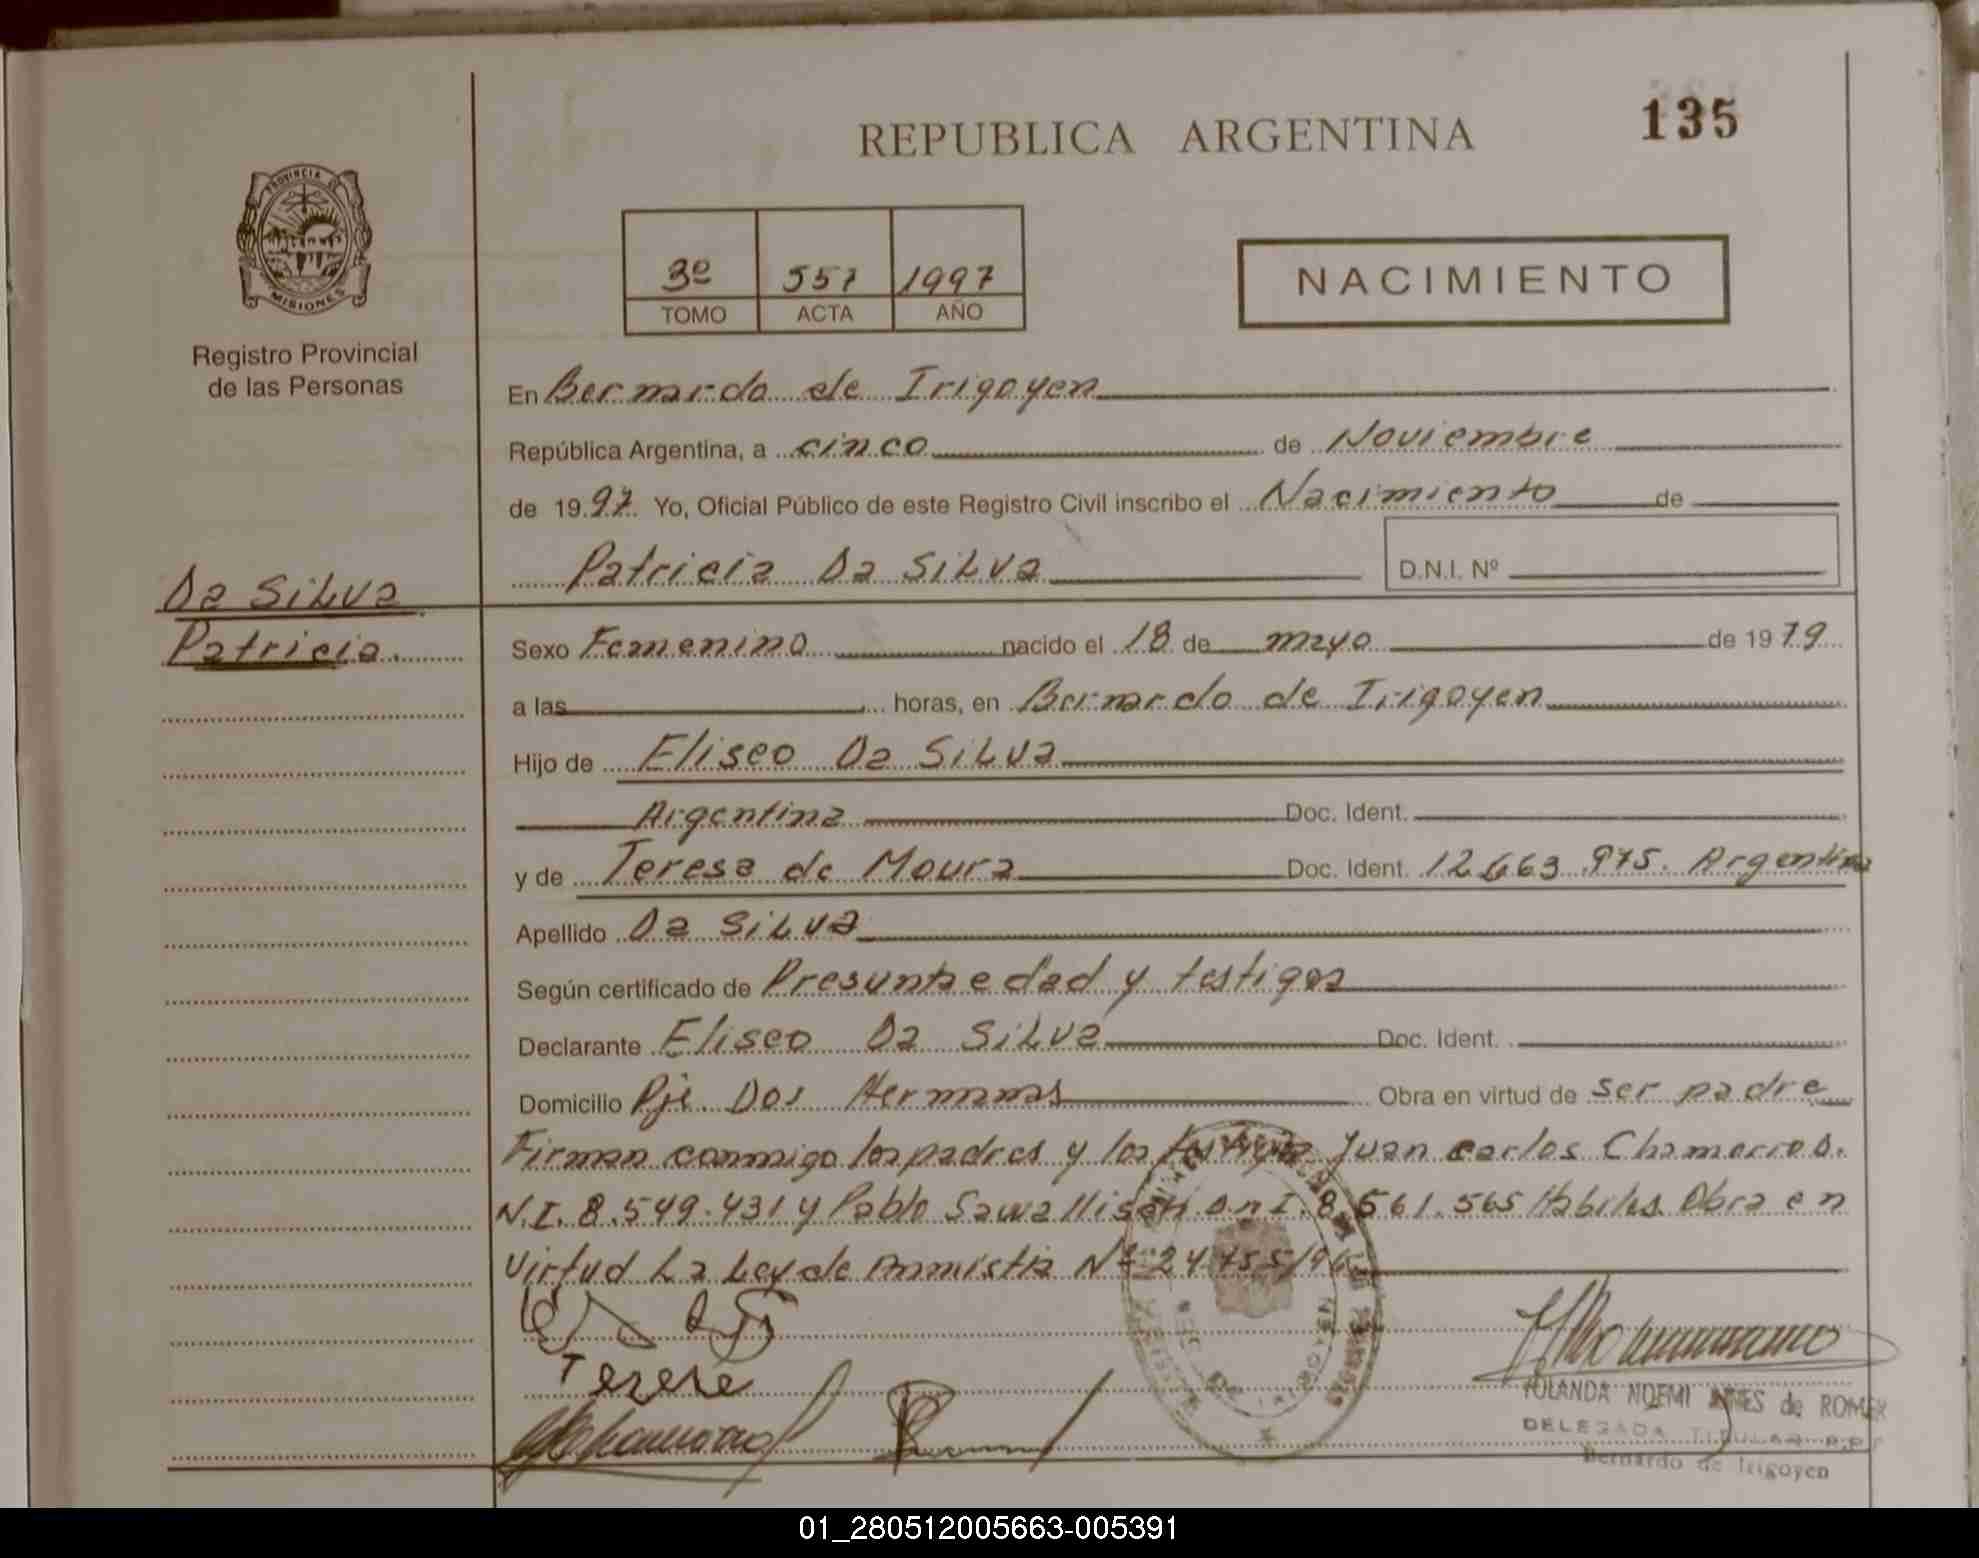 135
REPUBLICA ARGENTINA
PROVINCIA DE
MISIONES
3º 557 1997
TOMO ACTA AÑO
NACIMIENTO
Registro Provincial
de las Personas
En Bernardo de Irigoyen
República Argentina, a cinco de Noviembre
de 1997 Yo, Oficial Público de este Registro Civil inscribo el Nacimiento de
Patricia Da SiLva D.N.I. Nº
Da SiLva
Patricia.
Sexo Femenino nacido el 18 de mayo de 1979
a las horas, en Bernardo de Irigoyen
Hijo de Eliseo Da SiLva
Argentina Doc. Ident.
y de Teresa de Moura Doc. Ident. 12.663.975. Argentina
Apellido Da SiLva
Según certificado de Presunta edad y testigos
Declarante Eliseo Da SiLva Doc. Ident.
Domicilio Pje. Dos Hermanas Obra en virtud de ser padre
Firman conmigo los padres y los testigos Juan carlos Chamorro D.
N.I. 8.549.431 y Pablo Sawallisch D.N.I. 8.561.565 Habiles. Obra en
virtud La Ley de Amnistia Nº 24.755/96
Terere
YOLANDA NOEMI de ROMER
DELEGADA TITULAR R.P.P
Bernardo de Irigoyen
01_280512005663-005391